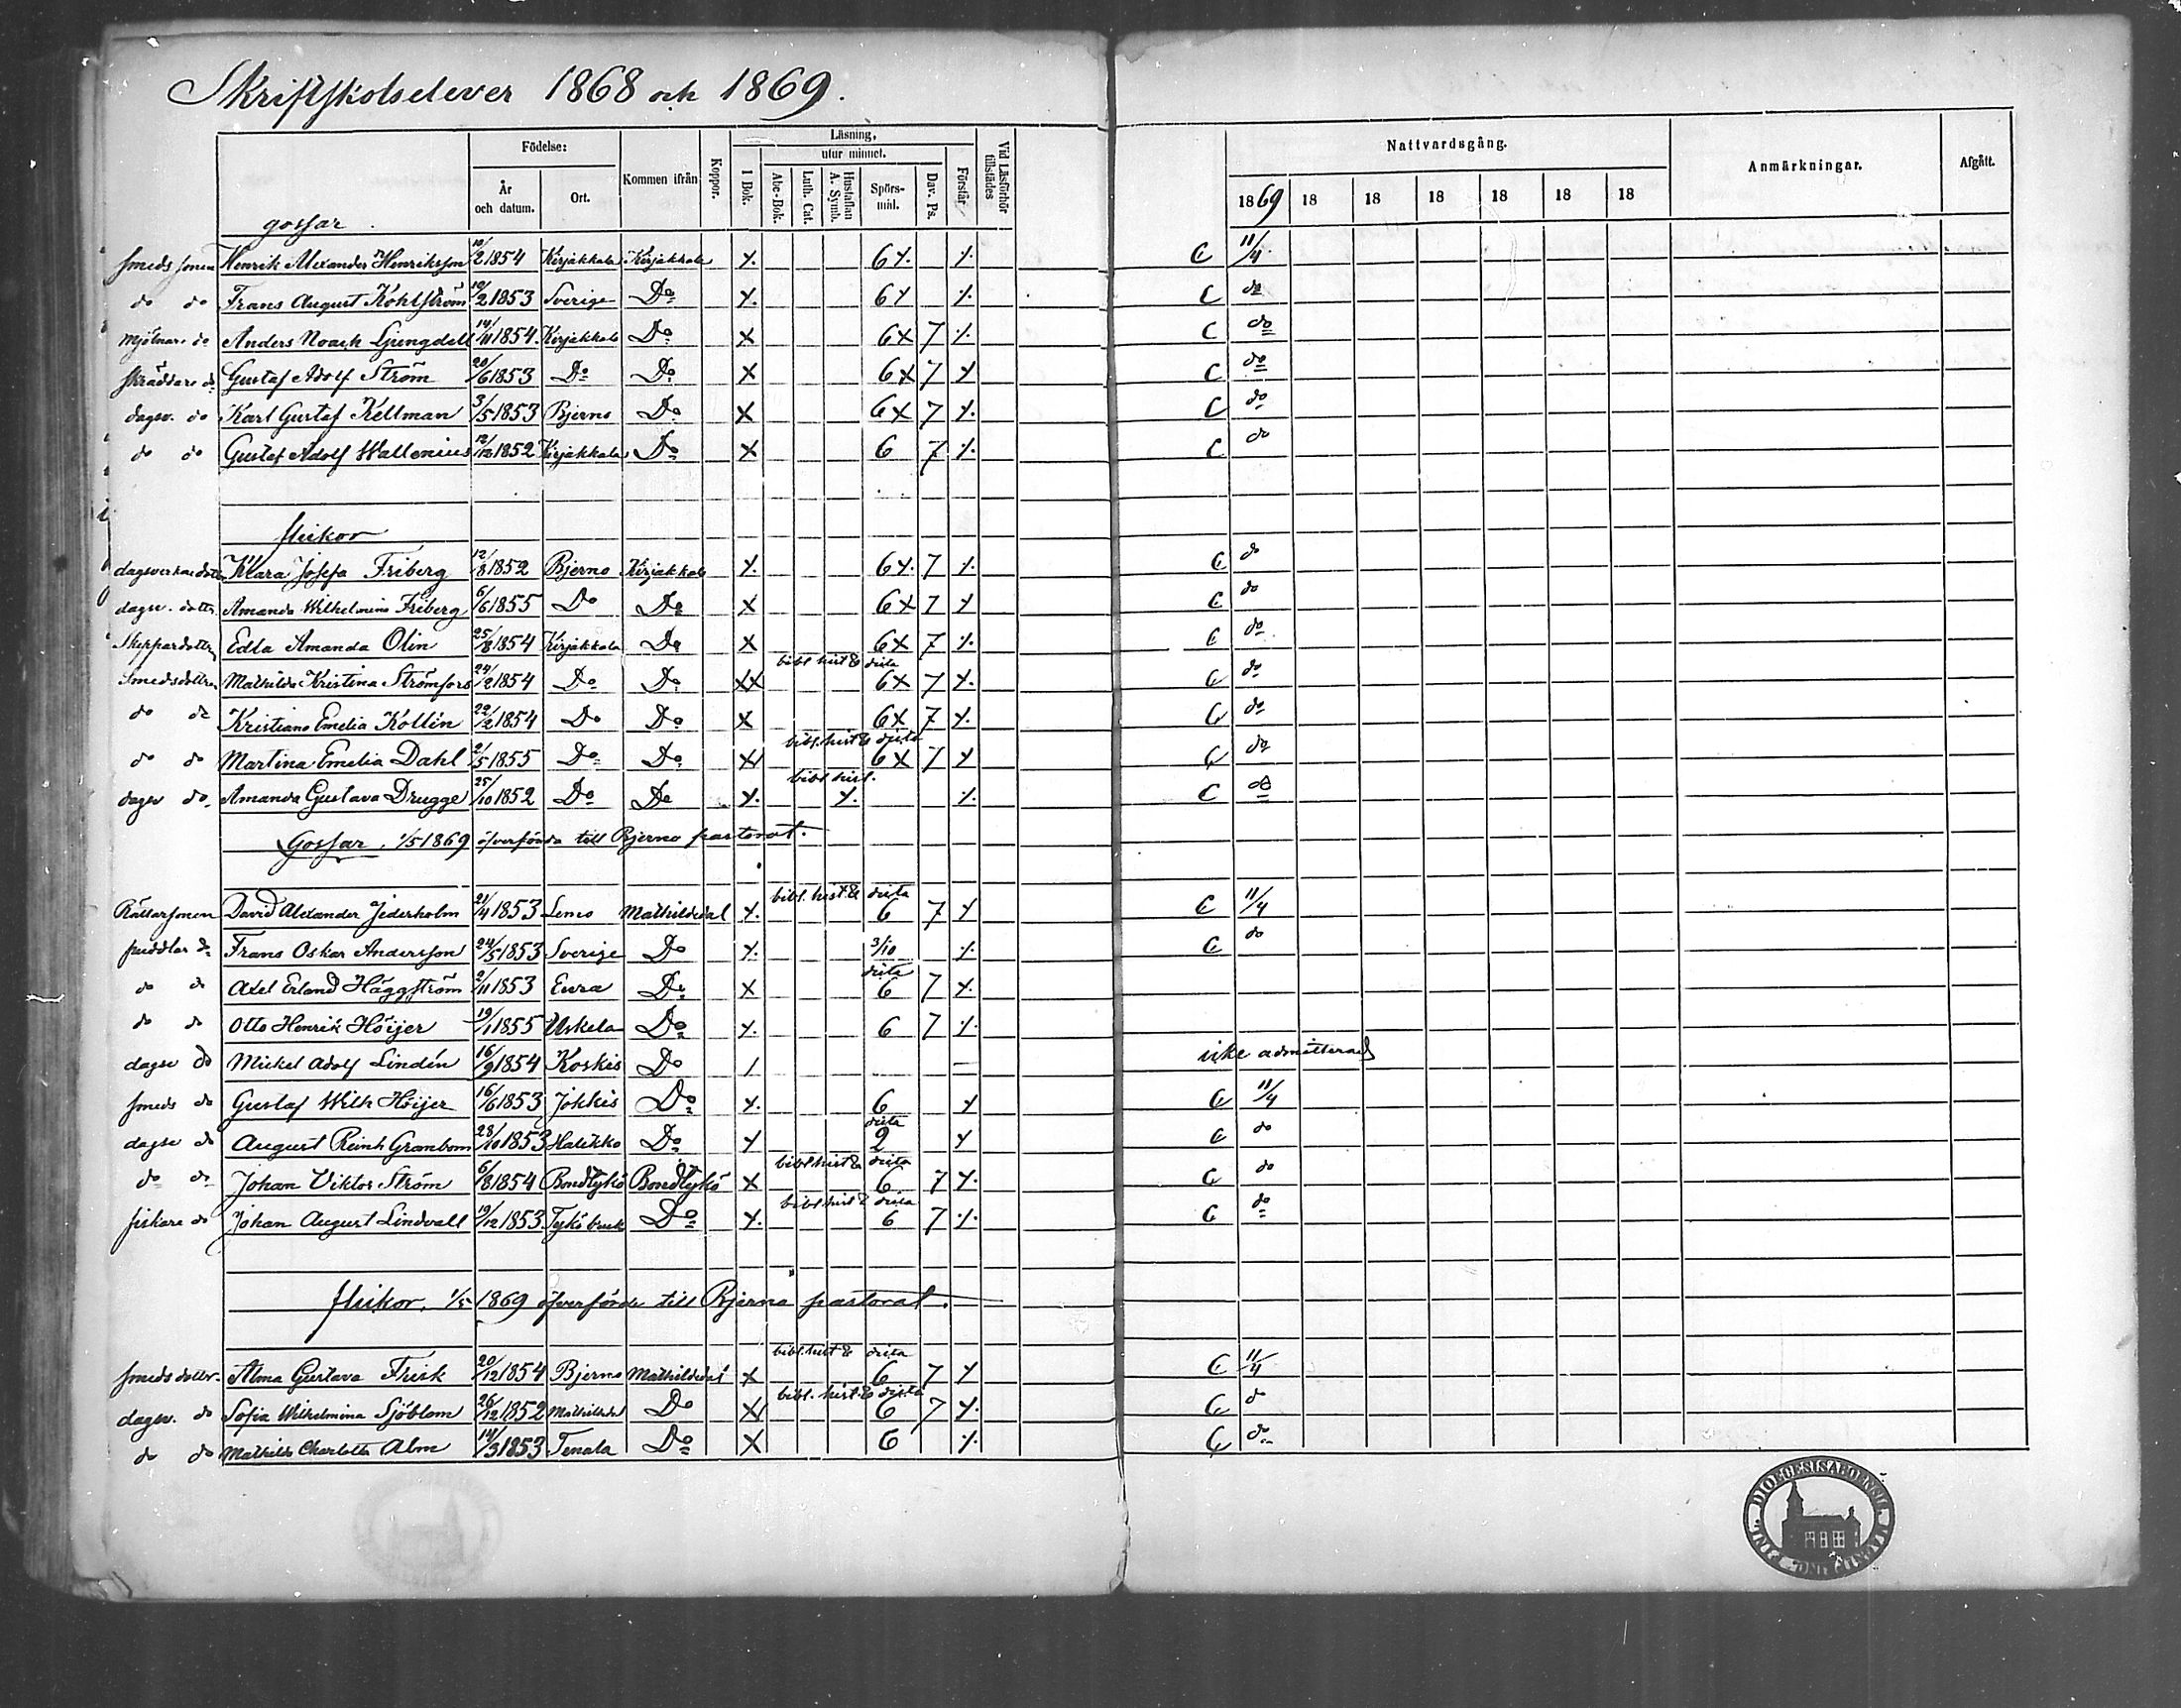 Skriftskolselever 1868 och 1869.
Födelse: Kommen ifrån Koppor. Läsning, Förstår Vid Läsförhör tillstädes Nattvardsgång. Anmärkningar. Afgått.
utur minnet.
År och datum. Ort. I Bok. Abc-Bok. Luth. Cat. Hustaflan A. Symb. Spörsmål. Dav. Ps. 1869 18 18 18 18 18 18
gossar.
smeds sonen Henrik Alexander Henriksson 10/2 1854 Kirjakkala Kirjakkala X. 6 X. X. C 11/4.
do do Frans August Kohlström 10/2 1853 Sverige Do X. 6 X X. C do
mjölnare do Anders Noach Ljungdell 14/11 1854 Kirjakkala Do X 6 X 7 X. C do
skräddare do Gustaf Adolf Ström 20/6 1853 Do Do X 6 X 7 X C do
dagsv. do Karl Gustaf Kellman 3/5 1853 Bjerno Do X 6 X 7 X. C do
do do Gustaf Adolf Wallenius 12/12 1852 Kirjakkala Do X 6 7 X. C do
flickor
dagsverkaedottr Klara Josefa Friberg 12/8 1852 Bjerno Kirjakkala X. 6 X. 7 X. C do
dagsv. dottr. Amanda Wilhelmina Friberg 6/6 1855 Do Do X 6 X 7 X C do
Skeppardottr Edla Amanda Olin 25/8 1854 Kirjakkala Do X 6 X 7 X. C do
bibl. hist & dicta
Smedsdottren Mathilda Kristina Strömfors 24/2 1854 Do Do XX 6 X 7 X. C do
do do Kristiana Emelia Kollin 22/2 1854 Do Do X 6 X 7 X. C do
bibl. hist & dicta
do do Martina Emelia Dahl 2/5 1855 Do Do XX 6 X 7 X C do
bibl hist.
dagsv do Amanda Gustava Drugge 25/10 1852 Do Do X. X. X. C do
Gossar. 1/5 1869 öfverförda till Bjerno pastorat.
bibl. hist & dicta
Rättarsonen David Alexander Jederholm 21/4 1853 Lemo Mathildedal X. 6 7 X C 11/4
puddlar do Frans Oskar Andersson 24/5 1853 Sverige Do X. 3/10 X. C do
dicta
do do Axel Erland Häggström 2/11 1853 Eura Do X 6 7 X.
do do Otto Henrik Höijer 19/1 1855 Uskela Do X. 6 7 X.
dagsv do Mickel Adolf Lindén 16/9 1854 Koskis Do / — icke admitterad
smeds do Gustaf Wilh Höijer 16/6 1853 Jokkis Do X. 6 X C 11/4
dicta
dagsv do August Reinh Granbom 28/10 1853 Halikko Do X 2 X C do
bibl hist & dicta
do do Johan Viktor Ström 6/8 1854 Bondtykö Bondtykö X 6 7 X. C do
bibl hist & dicta
fiskare do Johan August Lindvall 19/12 1853 Tykö bruk Do X. 6 7 X. C do
flickor. 1/5 1869 öfverförde till Bjerno pastorat.
bibl. hist & dicta
smeds dottr. Alma Gustava Frisk 20/12 1854 Bjerno Mathildedal X 6 7 X C 11/4
bibl. hist. & dicta
dagsv. do Sofia Wilhelmina Sjöblom 26/12 1852 Mathildedal Do XX 6 7 X. C do
do do Mathilda Charlotta Alm 14/3 1853 Tenala Do X 6 X. C do